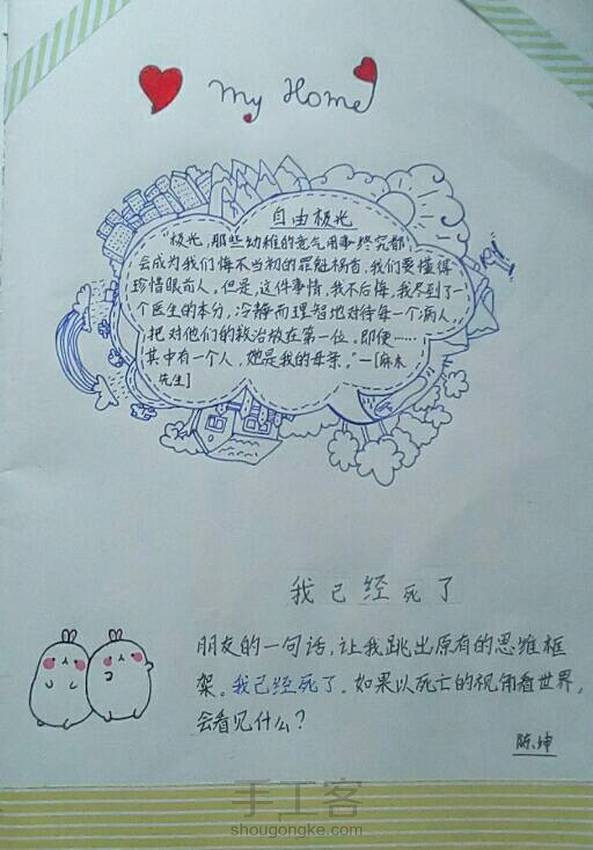 My Home
自由极光
极光，那些幼稚的意气用事终究都
会成为我们悔不当初的罪魁祸首，我们要懂得
珍惜眼前人。但是，这件事情，我不后悔，我尽到了一
个医生的本分，冷静而理智地对待每一个病人，
把对他们的救治放在第一位。即便……
其中有一个人，她是我的母亲。”—[麻木
先生]
我已经死了
朋友的一句话，让我跳出原有的思维框
架。我已经死了。如果以死亡的视角看世界，
会看见什么？
陈坤
手工客
shougongke.com